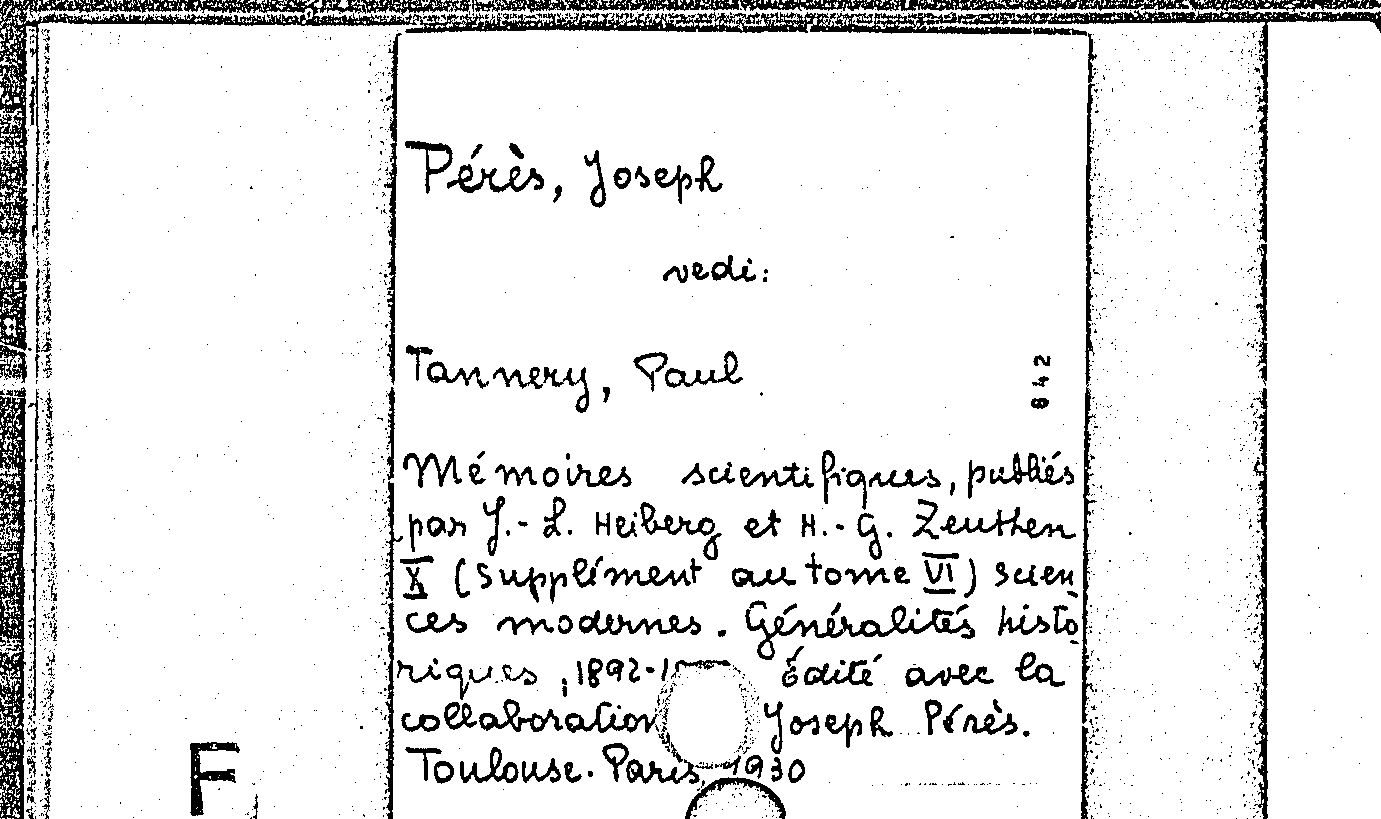 Pérès, Joseph
vedi:
Tannery, Paul
642
Mémoires scientifiques, publiés
par J.-L. Heiberg et H.-G. Zeuthen
X (Supplément au tome VI) scien
ces modernes. Généralités histo
riques, 1892-1 Édité avec la
collaboration Joseph Pérès.
Toulouse. Paris, 1930
F